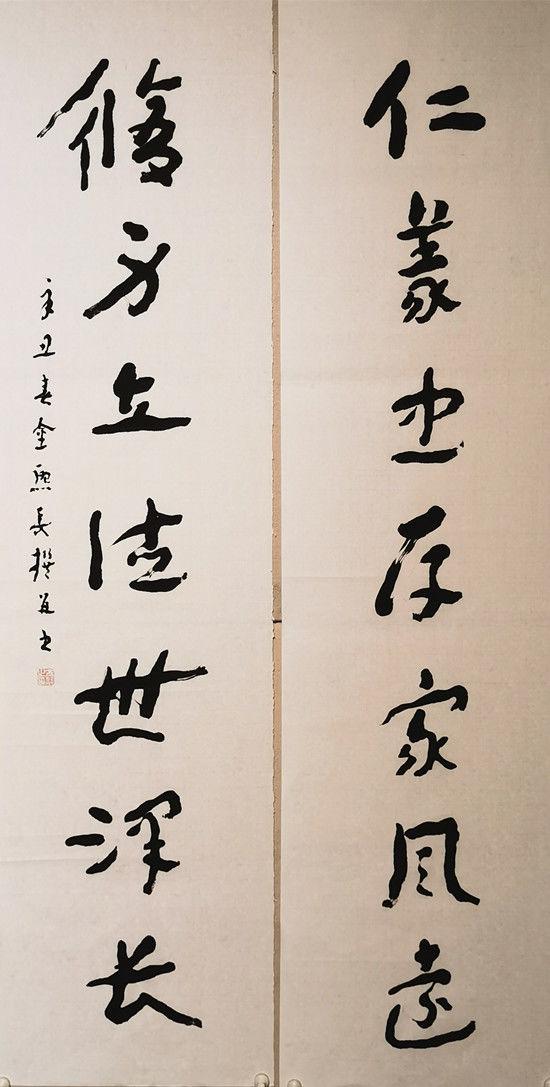 仁義忠存家風遠
脩身立德世澤长
辛丑春金熙长撰並书